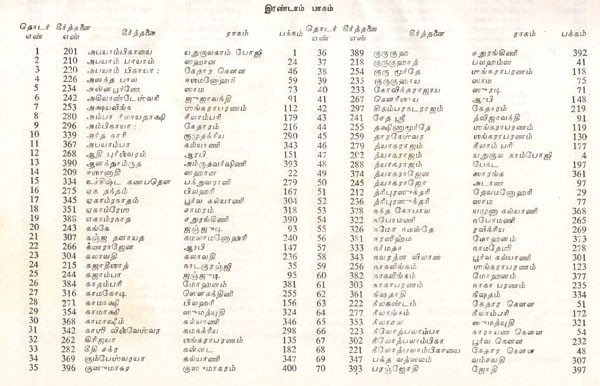 இரண்டாம் பாகம்
தொடர் எண் கீர்த்தனை எண் கீர்த்தனை ராகம் பக்கம்
1 201 அபயாம்பிகாயை யதுகுலகாம் போஜி 1
2 210 அபயாம் பாயாம் ஸஹான 24
3 220 அபயாம் பிகாயா: கேதார கௌள 46
4 226 அனக்த பால ஸாமனோஹரி 59
5 234 அன்னபூர்ணே ஸாம 73
6 242 அகிலாண்டேஸ்வரி ஜுஜாவந்தி 91
7 253 அக்ஷயலிங்க ஶங்கராபரணம் 112
8 280 அம்பா நீலாயதாக்ஷி நீலாம்பரி 179
9 296 அம்பிகாயா: கேதாரம் 216
10 339 அர்த்த நாரி குமுதக்ரிய 290
11 367 அபயாம்பா கல்யாணி 343
12 268 ஆதி புரீஸ்வரம் ஆரபி 151
13 390 ஆனக்தாம்ருத அம்ருதவர்ஷிணி 393
14 209 ஈஶானாதி ஸஹான 22
15 334 உச்சிஷ்ட கணபதௌ பந்துவராளி 279
16 275 ஏக தந்தம் பிலஹரி 167
17 345 ஏகாம்ரநாதம் பூர்வ கல்யாணி 304
18 351 ஏகாம்ரேஶ சாமரம் 318
19 388 ஏகாம்ரநாத சதுரங்கிணி 390
20 243 கங்கே ஜஞ்ஜுடி 93
21 307 கஞ்ஜ தளாயத கமலாமனோஹரி 240
22 266 கணராஜேன ஆரபி 147
23 304 கலாவதி கலாவதி 236
24 215 கஜாதீஶாத் நாடகுரஞ்ஜி 35
25 244 கஜாம்பா ஜஞ்ஜுடி 95
26 384 காதம்பரி மோஹனம் 381
27 316 காமகோடி ஸௌகந்தினி 255
28 271 காமாக்ஷி பிலஹரி 156
29 354 காமாக்ஷி ஸுமத்யுதி 277
30 368 காமாக்ஷீம் கல்யாணி 346
31 342 காஶி விஸ்வேஶ்வர கமகக்ரிய 298
32 262 கிரிஜயா ஶங்கராபரணம் 135
33 282 கீதி சக்ர கன்னட 182
34 369 கும்பேஸ்வராய கல்யாணி 347
35 396 குஸுமாகர குஸுமாகரம் 400
தொடர் எண் கீர்த்தனை எண் கீர்த்தனை ராகம் பக்கம்
36 389 குருகுஹ சதுரங்கிணி 392
37 218 குருகுஹாத் பலஹம்ஸ 41
38 254 குரு மூர்தே ஶங்கராபரணம் 118
39 235 குருகுஹாய ஸாம 75
40 233 கோவிந்தராஜய ஸுரடி 71
41 267 கௌரீஶாய ஆரபி 148
42 297 சிதம்பரநடராஜம் கேதாரம் 219
43 241 சேத ஸ்ரீ த்விஜாவந்தி 91
44 255 தக்ஷிணாமூர்தே ஶங்கராபரணம் 119
45 259 தாரகேஸ்வர ஶங்கராபரணம் 130
46 279 த்யாகராஜம் நீலாம் பரி 177
47 202 த்யாகராஜம் யதுகுல காம்போஜி 4
48 288 த்யாகராஜாய பேகட 197
49 374 த்யாகராஜேன ஸாரங்க 361
50 245 த்யாகராஜோ அடாணா 97
51 212 த்ரிபுரஸுந்தரி தேவமனோஹரி 29
52 236 த்ரிபுரஸுந்தரி ஸாம 77
53 378 நந்த கோபால யமுனா கல்யாணி 368
54 322 நபோமணி நபோமணி 265
55 326 நமோ நமஸ்தே ரவிக்ரிய 269
56 381 நரஸிம்ஹ மோஹனம் 373
57 333 நர்மதா நாமதேஶி 278
58 343 நவரத்ன விலாஸ பூர்வ கல்யாணி 301
59 256 நாகலிங்கம் ஶங்கராபரணம் 123
60 382 நாகலிங்கம் மோஹனம் 377
61 303 நாகாபரணம் நாகாபரணம் 235
62 361 நிஷதாதி நிஷதம் 334
63 222 நீலகண்டம் கேதார கௌள 51
64 277 நீலாங்கம் நீலாம்பரி 172
65 353 நீலாசல ஸுமத்யுதி 321
66 223 நீலோத்பலாம்பா நாராயண கௌள 54
67 302 நீலோத்பலாம்பிகா பூர்வ கௌள 232
68 221 நீலோத்பலாம்பிகாயை கேதார கௌள 48
69 347 பக்த வத்ஸலம் வம்ஸவதி 307
70 393 பரஞ்ஜோதி ஜோதி 397